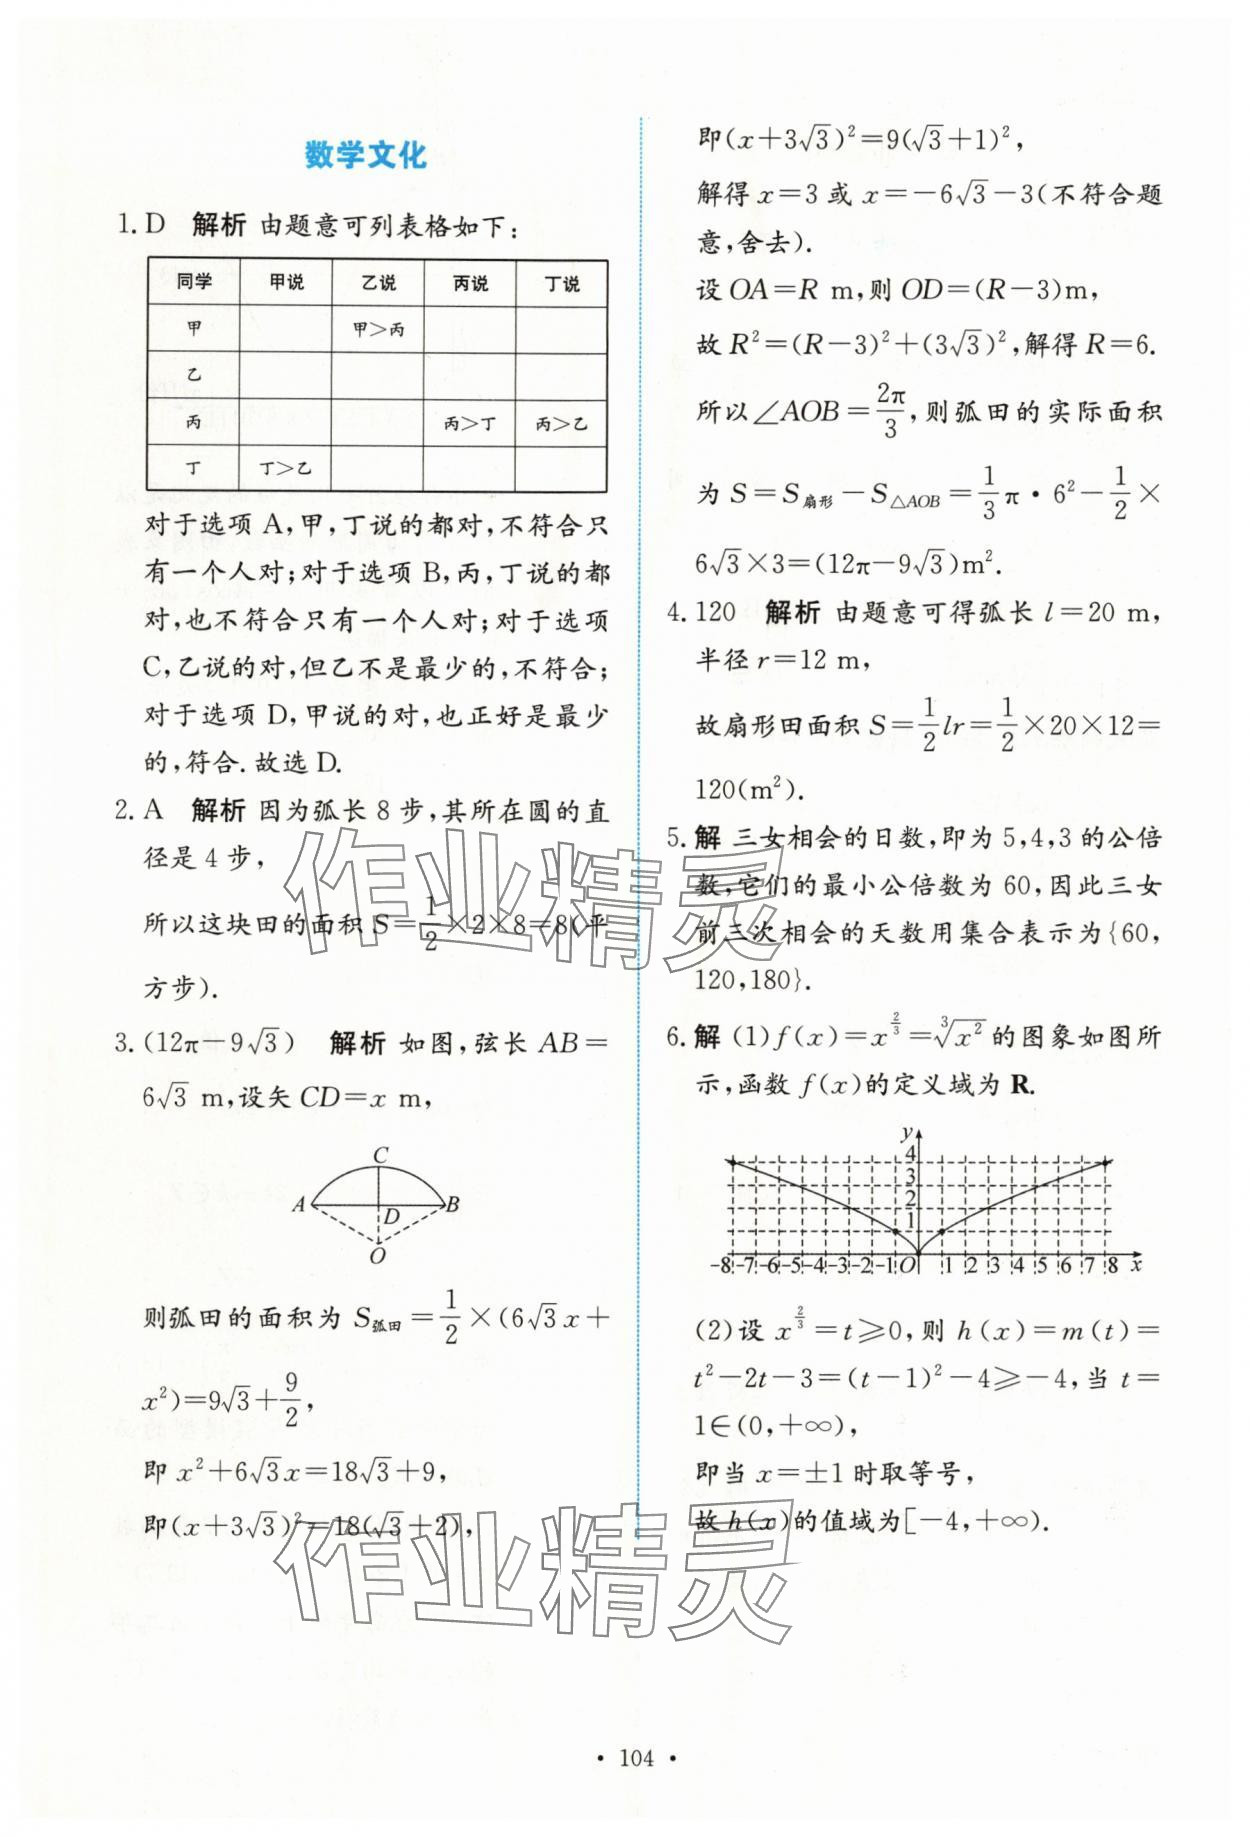 数学文化
1. D 解析 由题意可列表格如下:
同学 甲说 乙说 丙说 丁说
甲 甲>丙
乙
丙 丙>丁 丙>乙
丁 丁>乙
对于选项 A,甲,丁说的都对,不符合只
有一个人对;对于选项 B,丙,丁说的都
对,也不符合只有一个人对;对于选项
C,乙说的对,但乙不是最少的,不符合;
对于选项 D,甲说的对,也正好是最少
的,符合.故选 D.
2. A 解析 因为弧长 8 步,其所在圆的直
径是 4 步,
所以这块田的面积 S=1/2×2×8=8(平
方步).
3. (12π-9√3) 解析 如图,弦长 AB=
6√3 m,设矢 CD=x m,
C
A D B
O
则弧田的面积为 S弧田=1/2×(6√3x+
x²)=9√3+9/2,
即 x²+6√3x=18√3+9,
即(x+3√3)²=18(√3+2),
即(x+3√3)²=9(√3+1)²,
解得 x=3 或 x=-6√3-3(不符合题
意,舍去).
设 OA=R m,则 OD=(R-3)m,
故 R²=(R-3)²+(3√3)²,解得 R=6.
所以∠AOB=2π/3,则弧田的实际面积
为 S=S扇形-S△AOB=1/3π·6²-1/2×
6√3×3=(12π-9√3)m².
4. 120 解析 由题意可得弧长 l=20 m,
半径 r=12 m,
故扇形田面积 S=1/2lr=1/2×20×12=
120(m²).
5. 解 三女相会的日数,即为 5,4,3 的公倍
数,它们的最小公倍数为 60,因此三女
前三次相会的天数用集合表示为{60,
120,180}.
6. 解 (1)f(x)=x^(2/3)=∛x² 的图象如图所
示,函数 f(x)的定义域为 R.
y
4
3
2
1
-8 -7 -6 -5 -4 -3 -2 -1 O 1 2 3 4 5 6 7 8 x
(2)设 x^(2/3)=t≥0,则 h(x)=m(t)=
t²-2t-3=(t-1)²-4≥-4,当 t=
1∈(0,+∞),
即当 x=±1 时取等号,
故 h(x)的值域为[-4,+∞).
作业精灵
作业精灵
· 104 ·